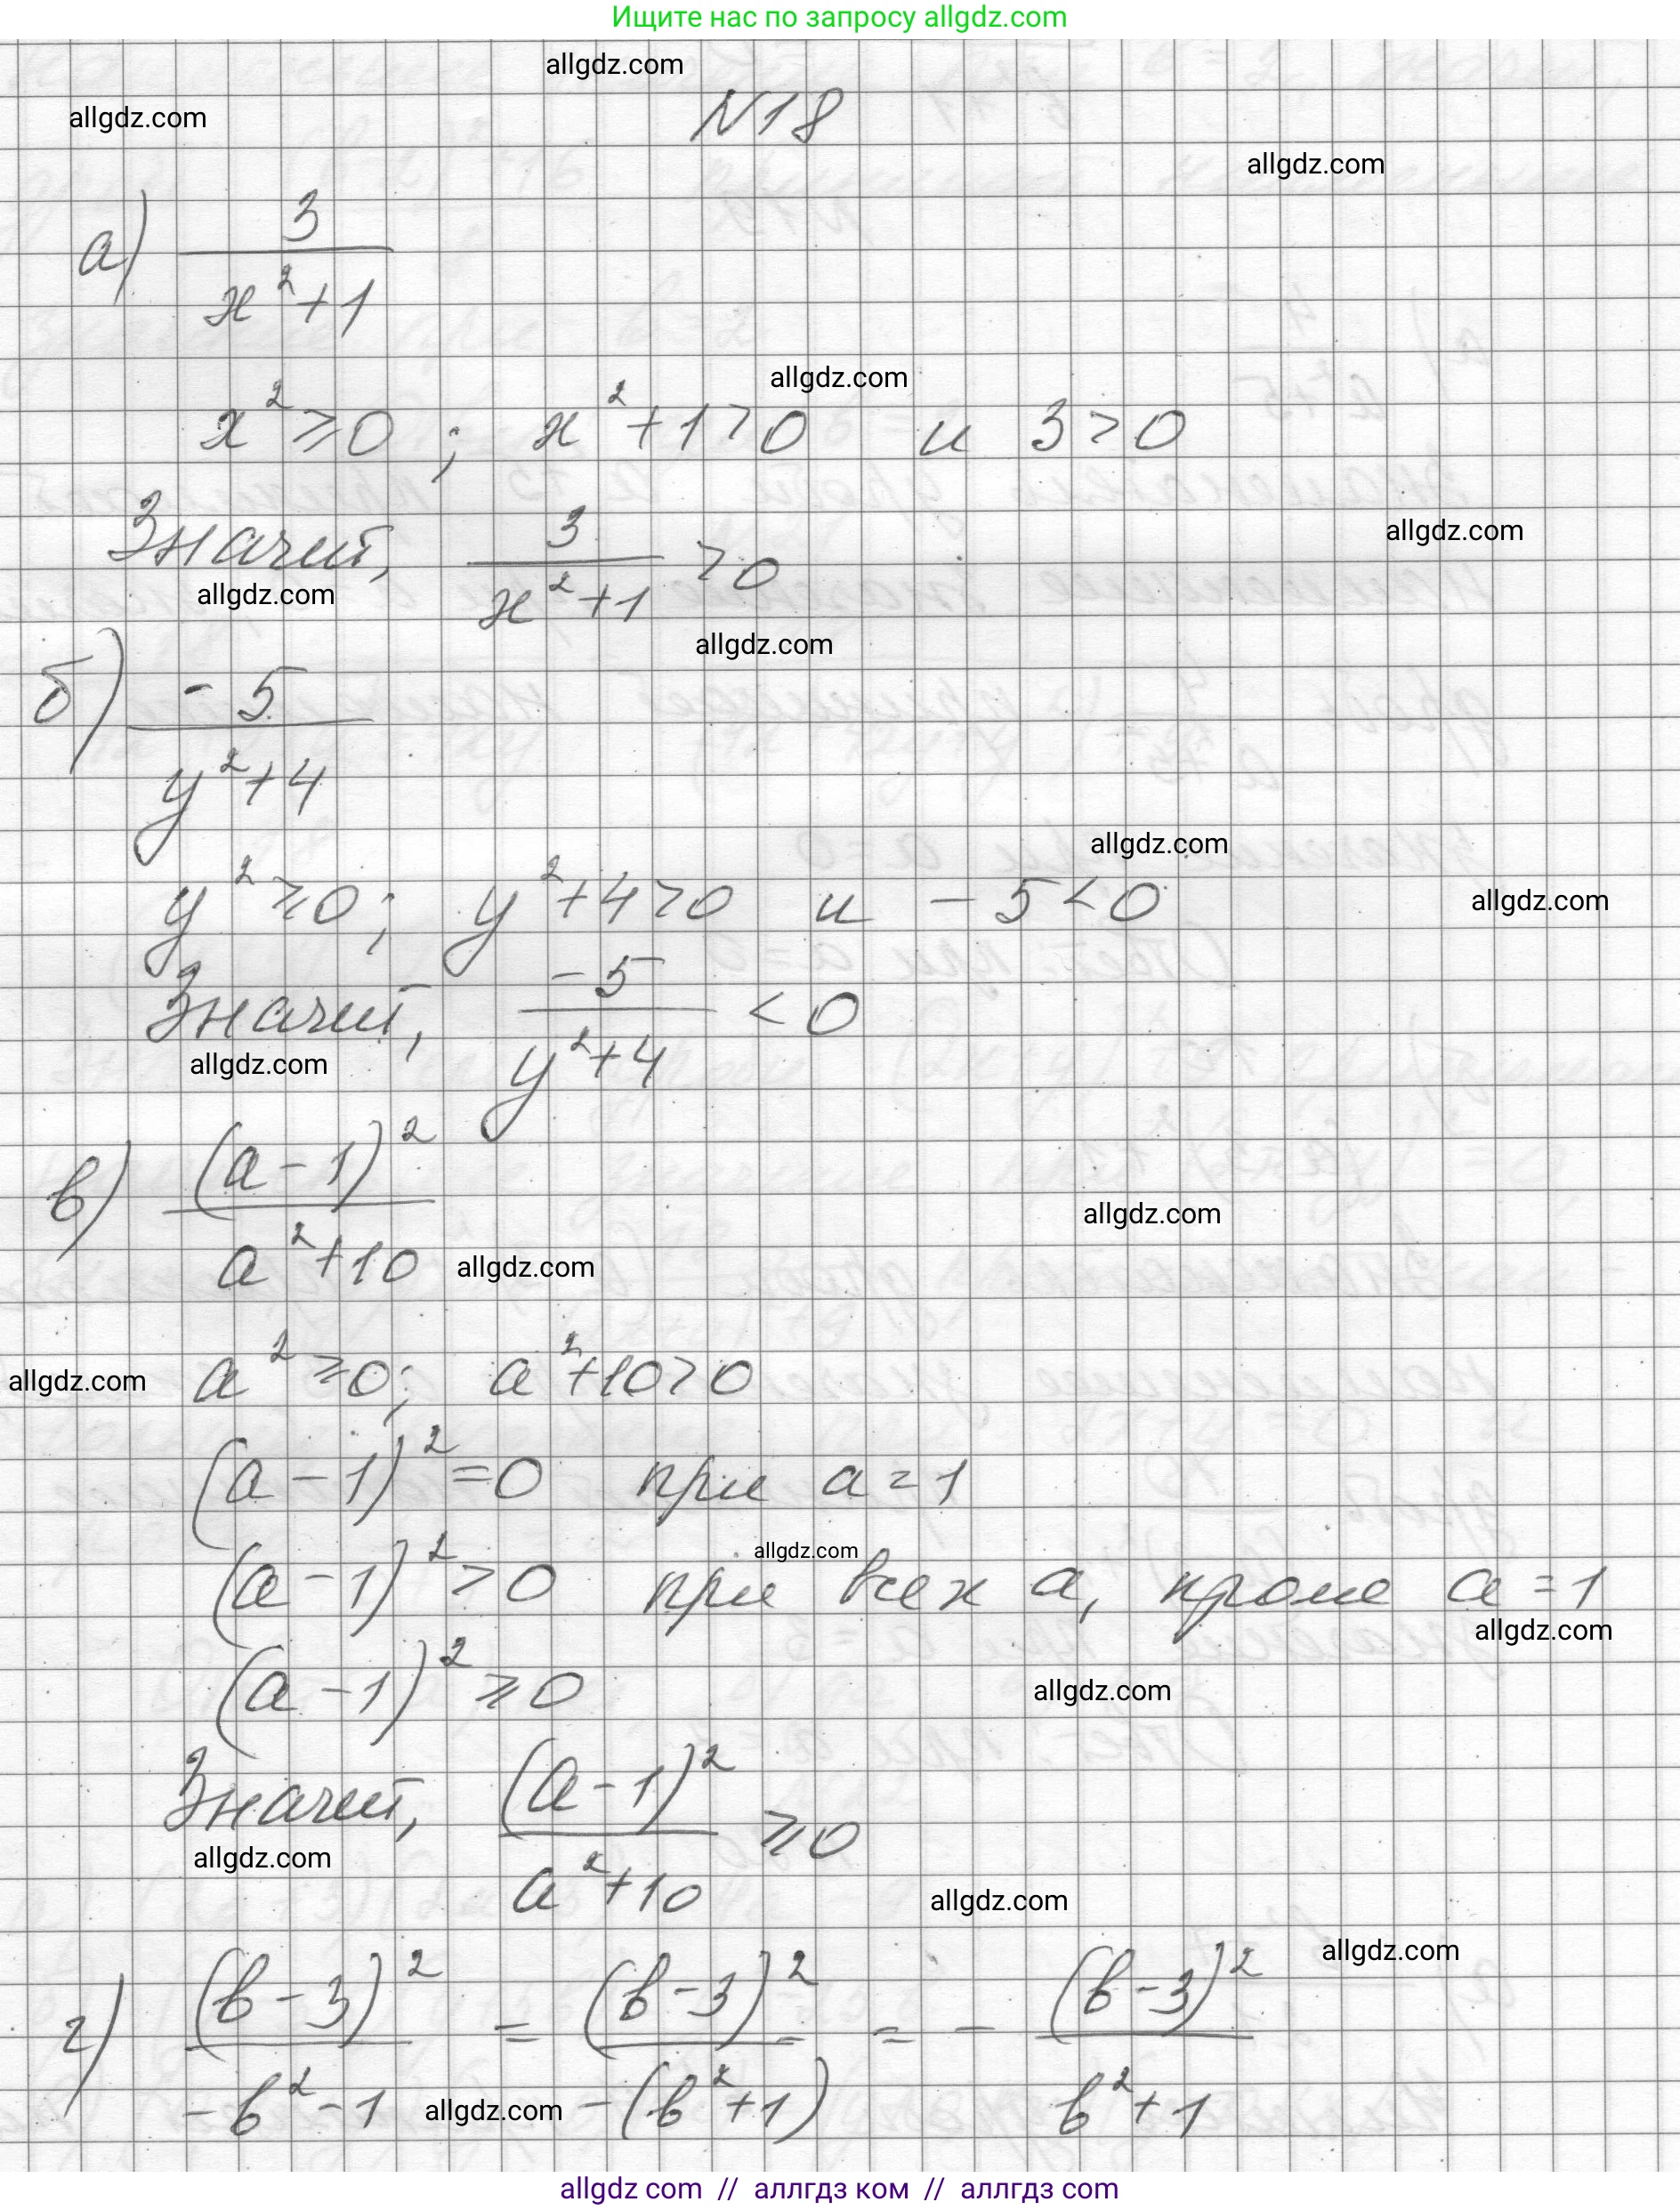 Ищите нас по запросу allgdz.com
allgdz.com
N18
allgdz.com
allgdz.com
а) 3/(x²+1)
allgdz.com
x² ⩾ 0 ; x²+1>0 и 3>0
allgdz.com
Значит, 3/(x²+1) >0
allgdz.com
allgdz.com
б) -5/(y²+4)
allgdz.com
y² ⩾ 0; y²+4>0 и -5<0
allgdz.com
Значит, -5/(y²+4) <0
allgdz.com
в) (a-1)²/(a²+10)
allgdz.com
allgdz.com
allgdz.com
a² ⩾ 0; a²+10>0
(a-1)²=0 при a=1
allgdz.com
(a-1)²>0 при всех a, кроме a=1
allgdz.com
(a-1)² ⩾ 0
allgdz.com
Значит, (a-1)²/(a²+10) ⩾ 0
allgdz.com
allgdz.com
allgdz.com
г) (b-3)²/(-b²-1) = (b-3)²/(-(b²+1)) = - (b-3)²/(b²+1)
allgdz.com
allgdz com // аллгдз ком // аллгдз com